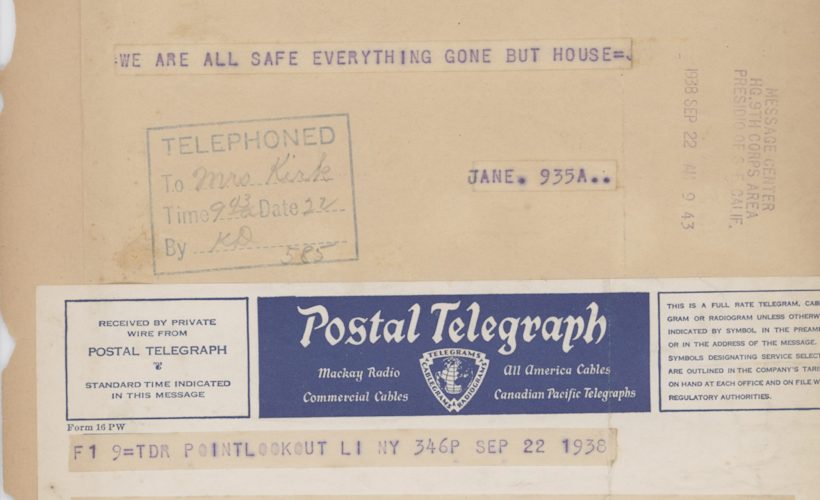 =WE ARE ALL SAFE EVERYTHING GONE BUT HOUSE=
TELEPHONED
To Mrs Kirk
Time 9 43 Date 22
By KD
585
JANE. 935A..
MESSAGE CENTER
HG.9TH CORPS AREA
PRESIDIO OF S.F. CALIF.
1938 SEP 22 AM 9 43
RECEIVED BY PRIVATE
WIRE FROM
POSTAL TELEGRAPH
STANDARD TIME INDICATED
IN THIS MESSAGE
Postal Telegraph
Mackay Radio
All America Cables
Commercial Cables
Canadian Pacific Telegraphs
TELEGRAMS
CABLEGRAMS
RADIOGRAMS
THIS IS A FULL RATE TELEGRAM, CAB
GRAM OR RADIOGRAM UNLESS OTHERW
INDICATED BY SYMBOL IN THE PREAM
OR IN THE ADDRESS OF THE MESSAGE.
SYMBOLS DESIGNATING SERVICE SELEC
ARE OUTLINED IN THE COMPANY'S TARI
ON HAND AT EACH OFFICE AND ON FILE W
REGULATORY AUTHORITIES.
Form 16 PW
F1 9=TDR POINTLOOKOUT LI NY 346P SEP 22 1938